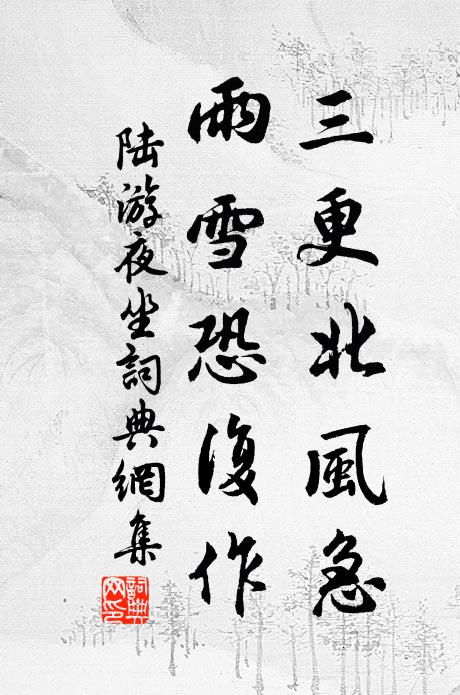 三更北風急
雨雪恐復作
陆游夜坐詞典網集
詞典网印